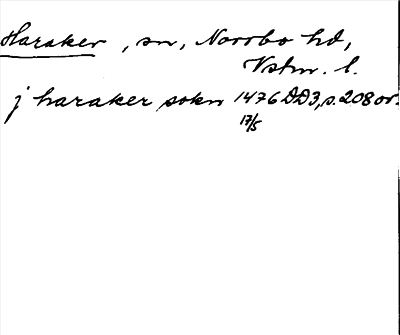 Haraker, sn, Norrbo hd,
Vstm. l.
j haraker sokn 1476 DD3, s. 208 or.
17/5